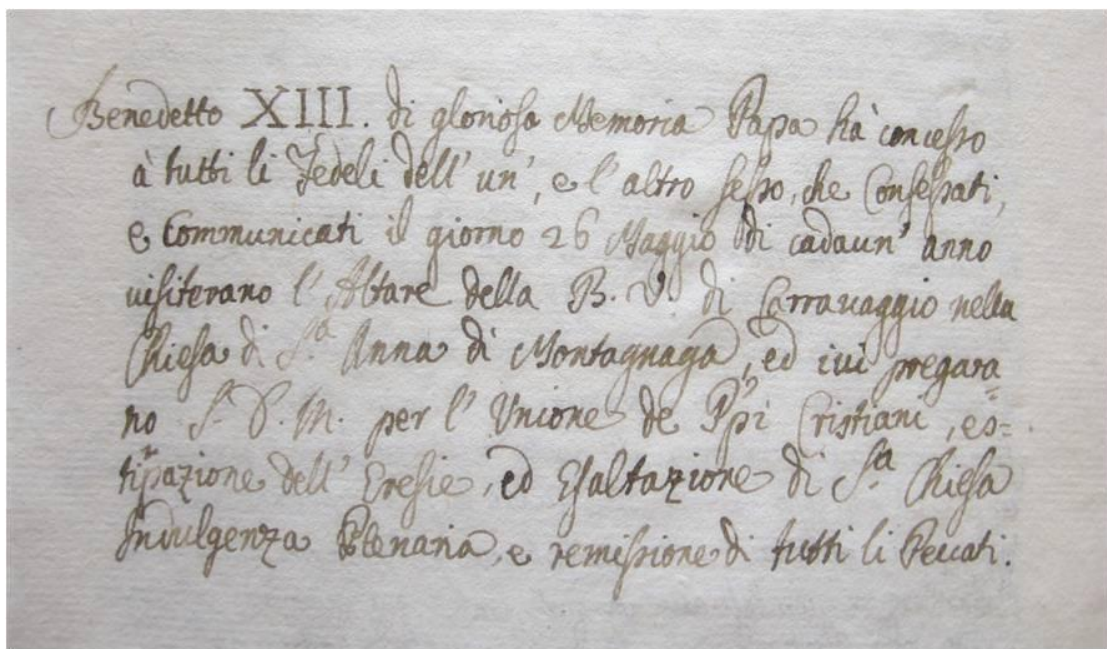 Benedetto XIII. di gloriosa Memoria Papa hà concesso
à tutti li Fedeli dell' un', e l' altro sesso, che Confessati,
e Communicati il giorno 26 Maggio di cadaun' anno
visiterano l' Altare della B. V. di Carravaggio nella
Chiesa di S.ta Anna di Montagnaga, ed ivi pregara=
no S. D. M. per l' Unione de Pp̃i Cristiani, es=
tirpazione dell' Eresie, ed Esaltazione di S.ta Chiesa
Indulgenza Plenaria, e remissione di tutti li Peccati.